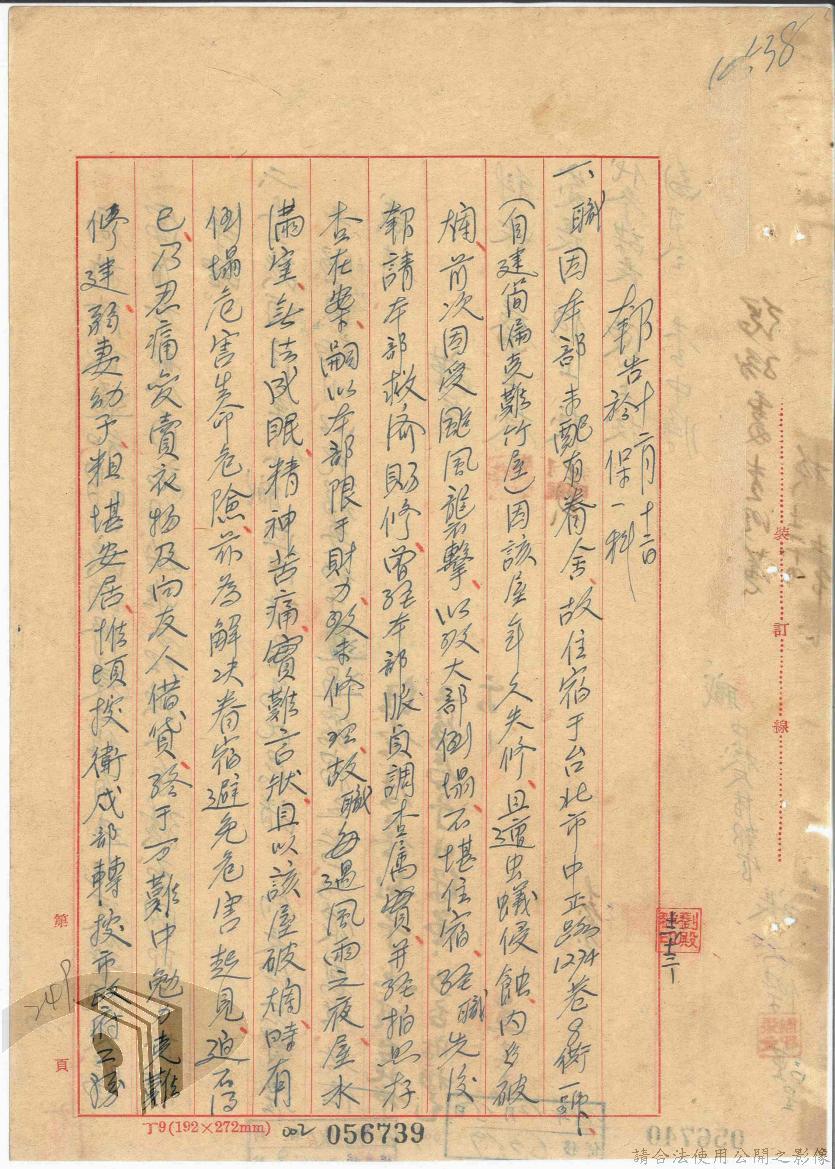 報告 十二月十二日
於保一科
一、職因本部未配有眷舍、故住宿于台北市中正路1274巷8衖一號、
(自建簡漏克難竹屋)因該屋年久失修、且遭虫蟻侵蝕、內多破
爛、前次因受颱風襲擊、以致大部倒塌、不堪住宿、經職先後
報請本部救濟賜修、曾經本部派員調查屬實、并經拍照存
查在案、嗣以本部限于財力、致未修理、故職每遇風雨之夜屋水
滿室、無法成眠、精神苦痛、實難言狀、且以該屋破爛、時有
倒塌危害生命危險、茲為解决眷宿避免危害起見、迫不得
已、乃忍痛变賣衣物及向友人借貸、終于万難中勉力克難
修建、弱妻幼子、粗堪安居、惟頃接衛戍部轉接市政府工務
裝
訂
線
第
249
頁
丁9(192×272mm)
002
056739
056740
請合法使用公開之影像